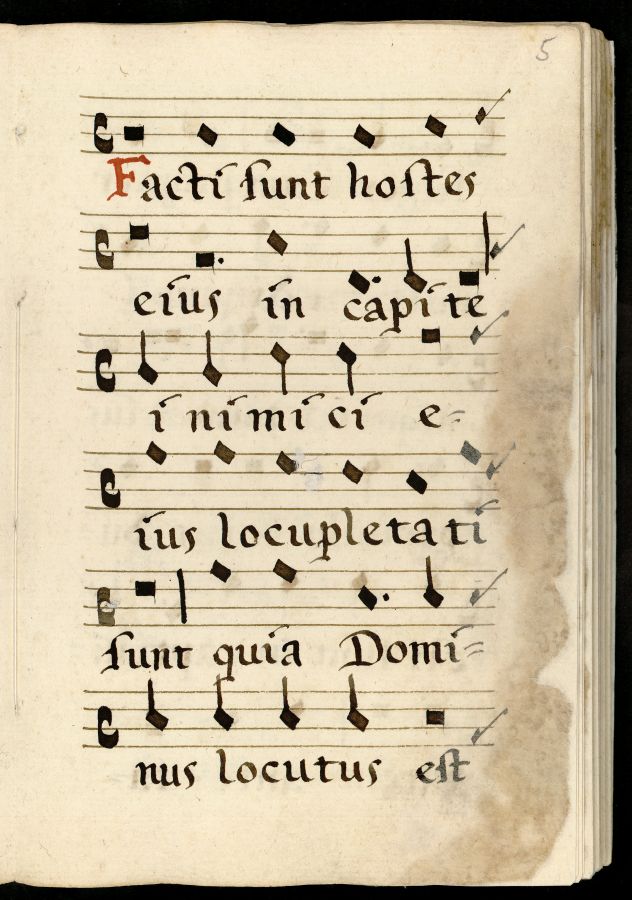 5
Facti sunt hostes
eius in capite
i ni mi ci e=
ius locupleta ti
sunt quia Domi=
nus locutus est